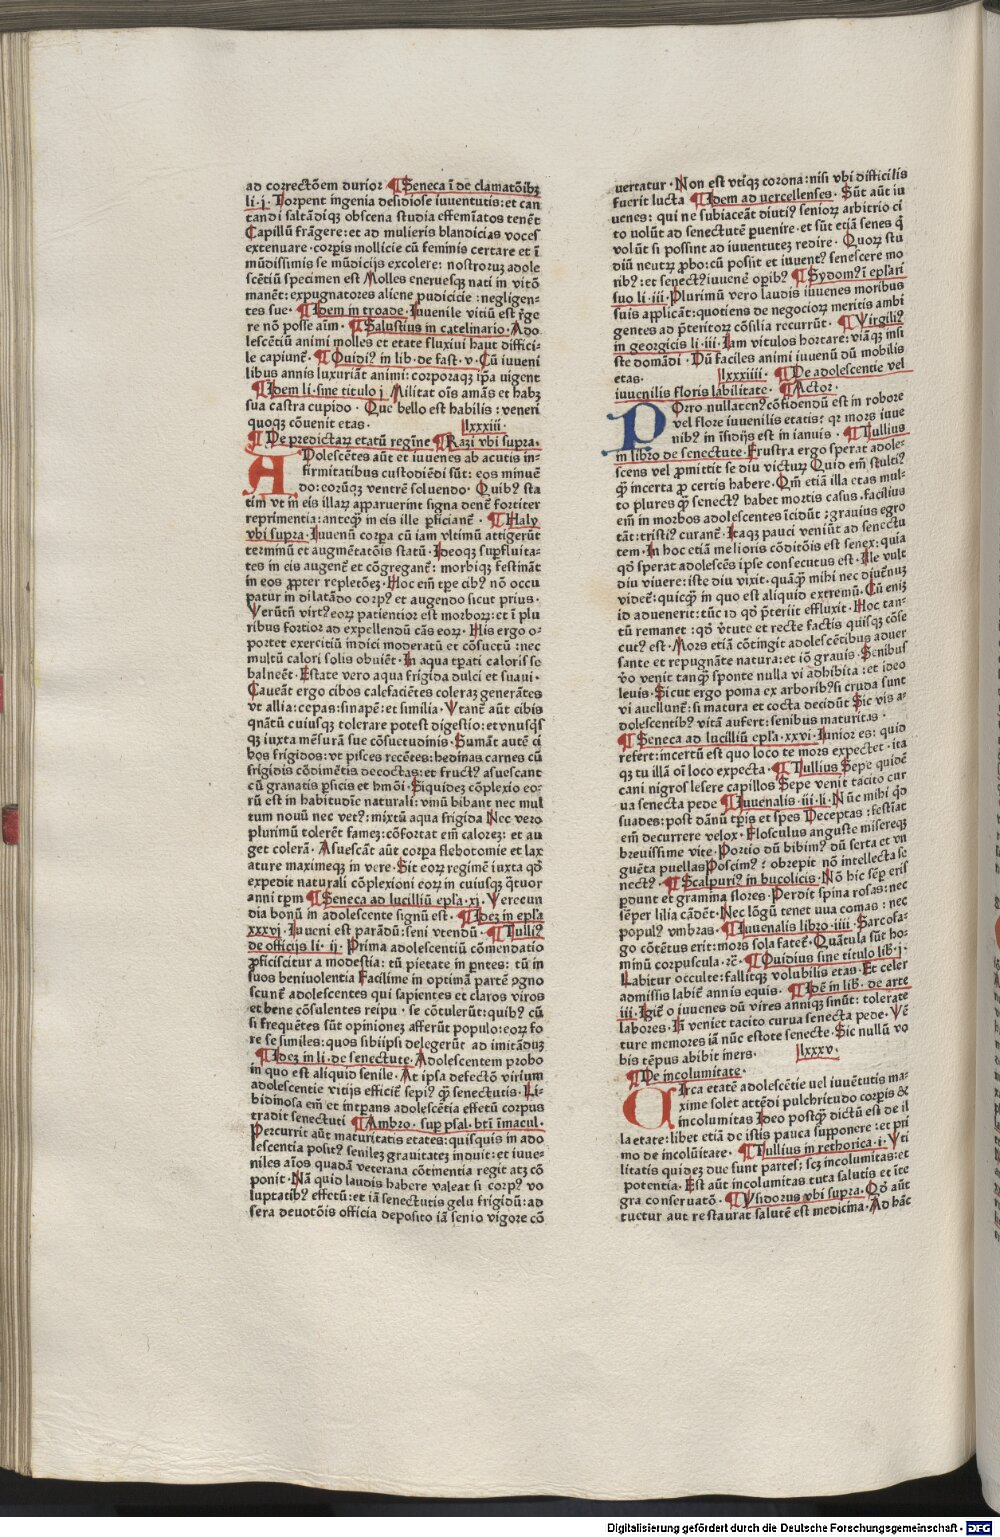 ad correctōem durior ¶ Seneca ī de clamatōibꝫ
li·j· Torpent ingenia desidiose iuuentutis: et can
tandi saltādiqꝫ obscena studia effemīatos tenēt
Capillū frāgere: et ad mulieris blandicias voces
extenuare·corpꝑis mollicie cū feminis certare et ī
mūdissimis se mūdicijs excolere: nostroruꝫ adole
scētiū specimen est Molles eneruesqꝫ nati in vitō
manēt: expugnatores aliene pudicicie: negligen-
tes sue· ¶ Idem in troade· Iuuenile vitiū est rꝫge
re nō posse aīm· ¶ Salustius in catelinario· Ado
lescētiū animi molles et etate fluxiui haut diffici-
le capiunt̄· ¶ Ouidiꝰ in lib·de fast·v· Cū iuueni
libus annis luxuriāt animi: corporaqꝫ ip̄a uigent
¶ Idem li·sine titulo j Militat oīs amās et habꝫ
sua castra cupido· Que bello est habilis: veneri
quoqꝫ cōuenit etas· lxxxiii·
¶ De predictaꝝ etatū regīne ¶ Razi vbi supra·
ADolescētes aūt et iuuenes ab acutis in-
firmitatibus custodiēdi sūt: eos minuē
do: eorūqꝫ ventrē soluendo· Quibꝰ sta
tim vt in eis illaꝝ apparuerint signa dent̄ fortiter
reprimentia: anteqꝫ̄ in eis ille ꝑficiant̄· ¶ Haly
vbi supra· Iuuenū corpa cū iam vltimū attigerūt
terminū et augmētatōis statū· Ideoqꝫ suꝑfluita-
tes in eis augent̄ et cōgregant̄: morbiqꝫ festināt
in eos ꝓpter repletōeꝫ· Hoc em̄ tꝑe cibꝰ nō occu
patur in dilatādo corpꝰ et augendo sicut prius·
Verūtn̄ virtꝰ eoꝝ patientior est morboꝝ: et ī plu
ribus fortior ad expellendū cās eoꝝ· His ergo o-
portet exercitiū indici moderatū et cōsuetū: nec
multū calori solis obuiēt· In aqua tꝑati caloris se
balneēt· Estate vero aqua frigida dulci et suaui·
Caueāt ergo cibos calefaciētes coleraꝫ generātes
vt allia: cepas: sinapē: et similia· Vtant̄ aūt cibis
qnātū cuiusqꝫ tolerare potest digestio: et vnusqꝫs
qꝫ iuxta mēsurā sue cōsuetudinis· Sumāt autē ci
bos frigidos: vt pisces recētes: hedinas carnes cū
frigidis cōdimētis decoctas: et fructꝰ asuescant
cū granatis ꝑsicis et hmōi· Siquidez cōplexio eo-
rū est in habitudīe naturali: vinū bibant nec mul
tum nouū nec vetꝰ: mixtū aqua frigida Nec vero
plurimū tolerēt fameꝫ: cōfortat em̄ caloreꝫ: et au
get colerā· Asuescāt aūt corpa flebotomie et lax
ature maximeqꝫ in vere· Sit eoꝝ regimē iuxta qđ
expedit naturali cōplexioni eoꝝ in cuiusqꝫ q̄tuor
anni tꝑm ¶ Seneca ad lucilliū epl̄a·xj· Verecun
dia bonū in adolescente signū est· ¶ Ideꝫ in epl̄a
xxxvj· Iuueni est parādū: seni vtendū· ¶ Tulliꝰ
de officijs li·ij· Prima adolescentiū cōmendatio
ꝓficiscitur a modestia: tū pietate in ꝑntes: tū in
suos beniuolentia Facilime in optimā partē ↄgno
scunt̄ adolescentes qui sapientes et claros viros
et bene cōsulentes reipu· se cōtulerūt: quibꝰ cū
si frequētes sūt opinioneꝫ afferūt populo: eoꝝ fo
re se similes: quos sibiipsi delegerūt ad imitādūꝫ
¶ Ideꝫ in li·de senectute· Adolescentem probo
in quo est aliquid senile· At ipsa defectō virium
adolescentie vitijs efficit̄ sepiꝰ qꝫ̄ senectutis· Li-
bidinosa em̄ et intꝑans adolescētia effetū corpus
tradit senectuti ¶ Ambro·suꝑ psal·btī īmacul·
Percurrit aūt maturitatis etates: quisquis in ado
lescentia positꝰ senileꝫ grauitateꝫ induit: et iuue-
niles aīos quadā veterana cōtinentia regit atqꝫ cō
ponit· Nā quid laudis habere valeat si corpꝰ vo
luptatibꝰ effetū: et iā senectutis gelu frigidū: ad
sera deuotōis officia deposito iā senio vigore cō
uertatur· Non est vtiqꝫ corona: nisi vbi difficilis
fuerit lucta ¶ Idem ad uercellenses· Sūt aūt iu
uenes: qui ne subiaceāt diutiꝰ senioꝝ arbitrio ci
to volūt ad senectutē ꝑuenire·et sūt etiā senes q̄
volūt si possint ad iuuentuteꝫ redire· Quoꝝ stu
diū neutꝝ ꝓbo: cū possit et iuuentꝰ senescere mo
ribꝰ: et senectꝰ iuuenē oꝑibꝰ ¶ Sydomꝰ ī epl̄ari
suo li·iii· Plurimū vero laudis iuuenes moribus
suis applicāt: quotiens de negocioꝝ meritis ambi
gentes ad p̄teritoꝝ cōsilia recurrūt· ¶ Virgiliꝰ
in georgicis li·iii· Iam vitulos hortare: viāqꝫ insi
ste domādi· Dū faciles animi iuuenū dū mobilis
etas· lxxxiiii· ¶ De adolescentie vel
iuuenilis floris labilitate· ¶ Actor·
POrro nullatenꝰ cōfidendū est in robore
vel flore iuuenilis etatis: qꝛ mors iuue
nibꝰ in īsidijs est in ianuis· ¶ Tullius
in libro de senectute· Frustra ergo sperat adole-
scens vel ꝓmittit se diu victuꝝ Quid em̄ stultiꝰ
qꝫ̄ incerta ꝓ certis habere· Qm̄ etiā illa etas mul-
to plures qꝫ̄ senectꝰ habet mortis casus·facilius
em̄ in morbos adolescentes īcidūt: grauius egro
tāt: tristiꝰ curant̄· Itaqꝫ pauci veniūt ad senectu
tem· In hoc etiā melioris cōditōis est senex: quia
qđ sperat adolescēs ipse consecutus est· Ille vult
diu viuere: iste diu vixit· quāqꝫ̄ mihi nec diut̄nuꝫ
videt̄: quicqꝫ̄ in quo est aliquid extremū· Cū eniꝫ
id aduenerit: tūc id qđ p̄teriit effluxit· Hoc tan-
tū remanet: qđ v̄tute et recte factis quisqꝫ cōse
cutꝰ est· Mors etiā cōtingit adolescētibus aduer
sante et repugnāte natura: et iō grauis· Senibus
v̄o venit tanqꝫ̄ sponte nulla vi adhibita: et ideo
leuis· Sicut ergo poma ex arboribꝰ si cruda sunt
vi auellunt̄: si matura et cocta decidūt Sic vis a-
dolescentibꝰ vitā aufert: senibus maturitas·
¶ Seneca ad lucilliū epl̄a·xxvi· Iunior es: quid
refert: incertū est quo loco te mors expectet·ita
qꝫ tu illā oī loco expecta· ¶ Tullius Sepe quidē
cani nigros lesere capillos Sepe venit tacito cur
ua senecta pede ¶ Iuuenalis·iii·li· Nūc mihi qđ
suades: post dānū tꝑis et spes Deceptas: festīat
em̄ decurrere velox· Flosculus anguste misereqꝫ
breuissime vite· Portio dū bibimꝰ dū serta et vn
guēta puellas Poscimꝰ: obrepit nō intellecta se
nectꝰ· ¶ Scalpuriꝰ in bucolicis· Nō hic sēꝑ eris
ꝑdunt et gramina flores· Perdit spina rosas: nec
sēper lilia cādēt· Nec lōgū tenet uua comas: nec
populꝰ vmbras· ¶ Iuuenalis libro·iiii· Sarcofa-
go cōtētus erit: mors sola fatet̄· Quātula sūt ho-
minū corpuscula·ꝛc̄· ¶ Ouidius sine titulo lib·j·
Labitur occulte: fallitqꝫ volubilis etas· Et celer
admissis labit̄ annis equis· ¶ Idē in lib·de arte
iii· Igit̄ o iuuenes dū vires anniqꝫ sinūt: tolerate
labores· Iā veniet tacito curua senecta pede· Vē
ture memores iā nūc estote senecte· Sic nullū vo
bis tēpus abibit iners· lxxxv·
¶ De incolumitate·
CIrca etatē adolescētie uel iuuētutis ma-
xime solet attēdi pulchritudo corpis &
incolumitas Ideo postqꝫ̄ dictū est de il
la etate: libet etiā de istis pauca supponere: et pri
mo de incolūitate· ¶ Tullius in rethorica·i· Vti
litatis quideꝫ due sunt partes: scꝫ incolumitas: et
potentia· Est aūt incolumitas tuta salutis et īte
gra conseruatō· ¶ Ysidorus vbi supra· Qđ aūt
tuetur aut restaurat salutē est medicina· Ad hāc
Digitalisierung gefördert durch die Deutsche Forschungsgemeinschaft - DFG